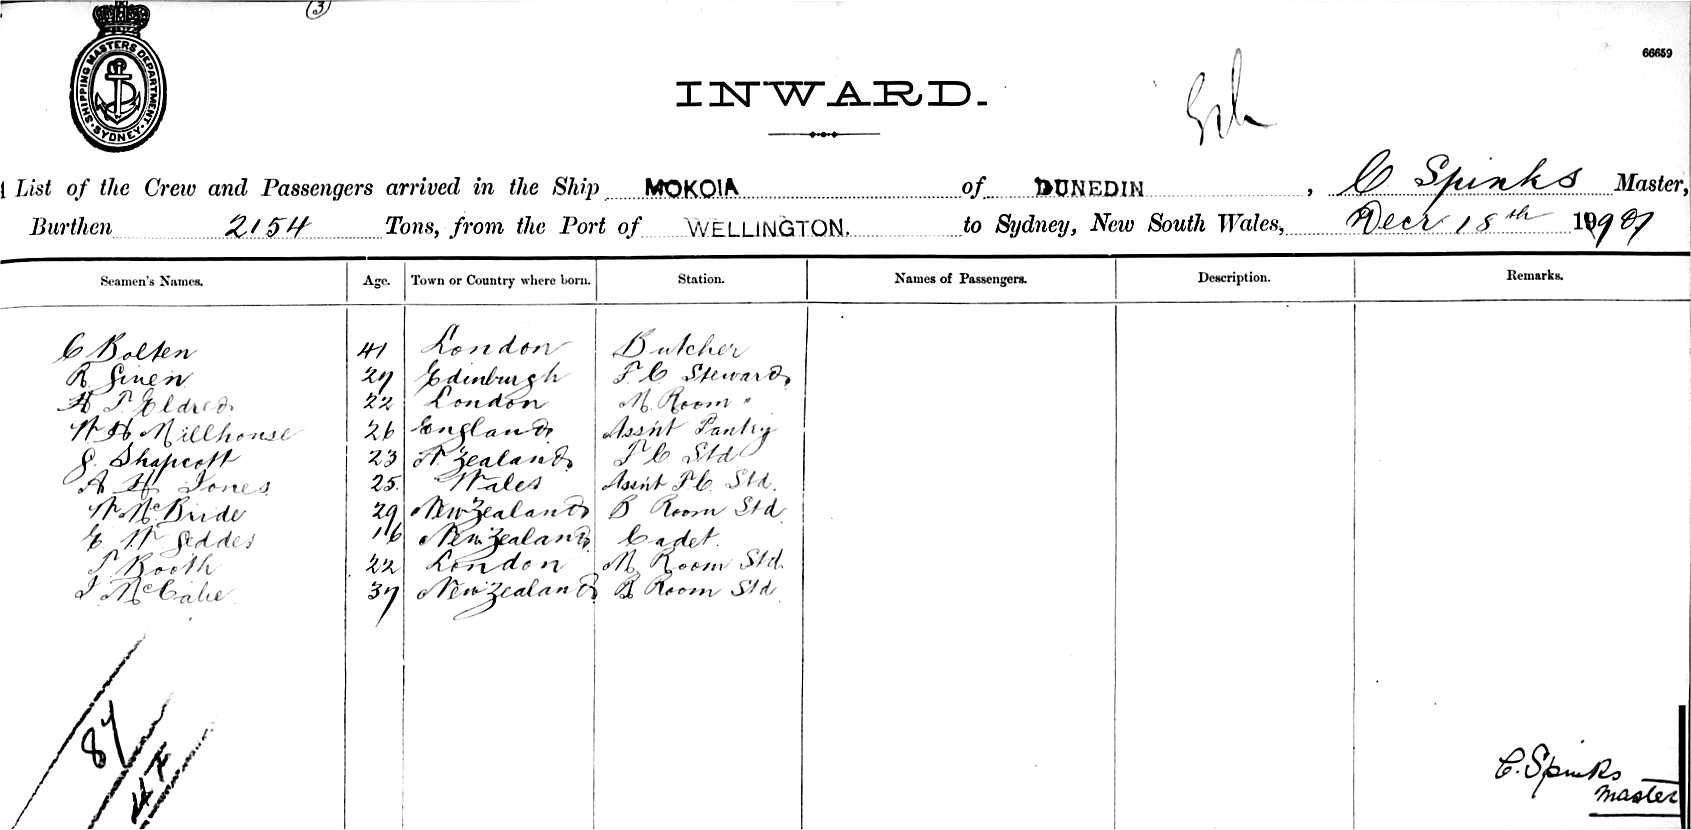 3
66659
SHIPPING MASTERS DEPARTMENT. SYDNEY
INWARD.
List of the Crew and Passengers arrived in the Ship MOKOIA of DUNEDIN, C Spinks Master,
Burthen 2154 Tons, from the Port of WELLINGTON. to Sydney, New South Wales, Decr 18th
Seamen's Names. Age. Town or Country where born. Station. Names of Passengers. Description. Remarks.
C Bolten 41 London Butcher
R 27 Edinburgh F.C. Steward
H T. Eldred 22 London M. Room "
W H Millhouse 26 England Assnt Pantry
G. Shapcott 23 N. Zealand F C Std
A H Jones 25 Wales Assnt F.C. Std.
W McBride 29 New Zealand B Room Std
E W Geddes 16 New Zealand Cadet.
T Booth 22 London M Room Std.
J McCabe 37 New Zealand B Room Std
87
C. Spinks
Master